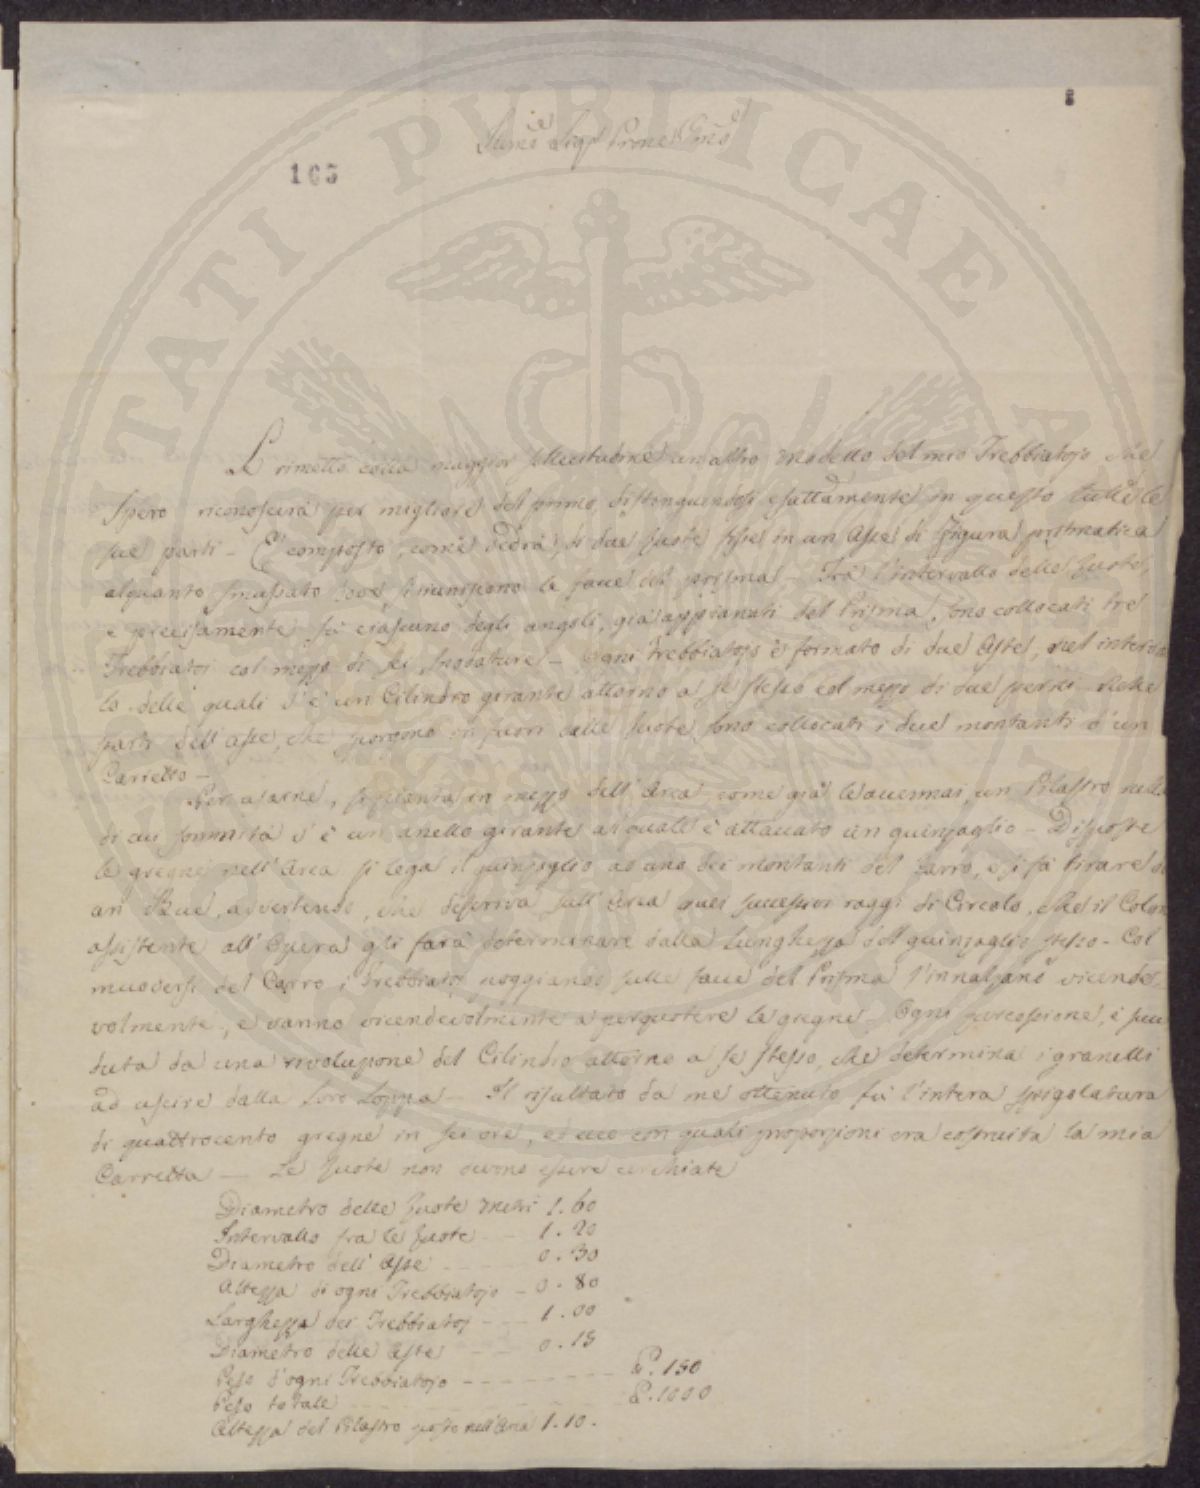 165
Le rimetto colla maggior sollecitudine un altro modello del mio Trebbiatojo che
spero riconoscerà per migliore del primo, distinguendosi esattamente in questo tutte le
sue parti – E' composto, come vedrà, di due Ruote fisse in un Asse di figura prismatica
alquanto smussato dove si riuniscono le facce del prisma – Trà l'intervallo delle Ruote,
e precisamente sù ciascuno degli angoli, già appianati del Prisma, sono collocati trè
Trebbiatoj col mezzo di sei snodature – Ogni Trebbiatojo è formato di due Aste, nel interval
lo delle quali v'è un Cilindro girante attorno a se stesso col mezzo di due perni – Nelle
parti dell'Asse, che sporgono in fuori dalle Ruote sono collocati i due montanti d'un
Carretto –
Per usarne, si pianta in mezzo dell'Area come già le accennai, un Pilastro nella
di cui sommità v'è un anello girante al quale è attaccato un guinzaglio – Disposte
le gregne nell'Area si lega il guinzaglio ad uno dei montanti del Carro, e si fà tirare da
un Bue, avvertendo, che descriva sull'Area quei successivi raggi di Circolo, che il Colono
assistente all'Opera gli farà determinare dalla lunghezza del guinzaglio stesso – Col
muoversi del Carro i Trebbiatoj poggiando sulle facce del Prisma s'innalzano vicende
volmente, e vanno vicendevolmente a perquotere le gregne – Ogni percossione, è succe
duta da una rivoluzione del Cilindro attorno a se stesso, che determina i granelli
ad uscire dalla loro Loppa – Il risultato da me ottenuto fù l'intera spigolatura
di quattrocento gregne in sei ore, ed ecco con quali proporzioni era costruita la mia
Carretta – Le Ruote non devono essere cerchiate
Diametro delle Ruote Metri 1.60
Intervallo fra le Ruote – – 1.20
Diametro dell'Asse – – – 0.30
Altezza di ogni Trebbiatojo – 0.80
Larghezza dei Trebbiatoj – – 1.00
Diametro delle Aste – – 0.15
Peso d'ogni Trebbiatojo – – – – – – – – P. 150
Peso totale – – – – – – – – P. 1000
Altezza del Pilastro posto nell'Area 1.10.